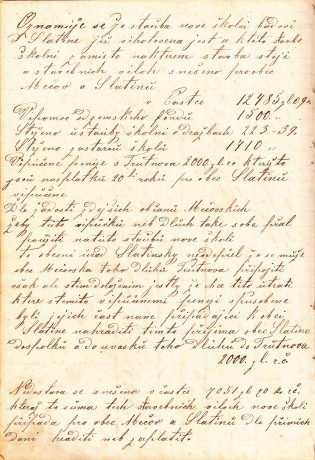 Oznamuje se že stavba nove školní budovi
v Slatině již vihotovena jest a k této stavbe
školní i místo na kterem stavba stojí
a stavebních viloh snešeno pro obec
Mečov a Slatinu
v Častce 12483 zl. 09 k
Vipomoc od zemskeho fondu 1500 „
Stýno u stavby školní o dražbach 223 - 39.
Stýno za starou školu 1710 „
Vipučene penize s Trutnova 2000 zl. co kterýsto
jsou na splatku 20ti roků pro obec Slatinu
vipučene
Dle žadosti zdejsich občanů Mečovskich
žeby tuto vipučku neb dluh take sobe přal
použiti na tuto stavbu nove školi
to obecní úrad Slatinsky neodepřel že se muže
obec Mečovska toho dluhu Trutnova připojit
však ale s tím doloženim jestly je ba tito utrati
ktere s timto vipučenimi penezi spusobene
byli jejich čast nove připadajici k obci
Slatine nahraditi timto přijima obec Slatina
dospolku a do uvasku toho dluhu s Trutnova
2000. zl. r.č.
Nu zostava se snešeno v častce 7051 zl 70 k r.č.
kteraž to suma tech stavebnich viloh nove školi
připada pro obec Mečov a Slatinu dle přimich
dani hraditi neb zaplatiti.